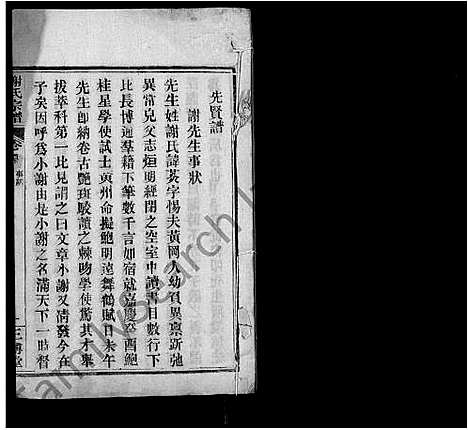 先賢譜
謝先生事狀
先生姓謝氏諱葵字惕夫黃岡人幼負異稟跅弛
異常兒父志烜明經閉之空室中讀書目數行下
比長博通羣籍下筆數千言如宿就嘉慶癸酉鮑
桂星學使試士黃州命擬鮑明遠舞鶴賦日未午
先生卽納卷古艷班駮讀之棘吻學使驚其才舉
拔萃科第一比見謂之曰文章小謝又淸發今在
子矣因呼爲小謝由是小謝之名滿天下一時督
謝氏宗譜
卷
事狀
一
三
堂
FamilySearch